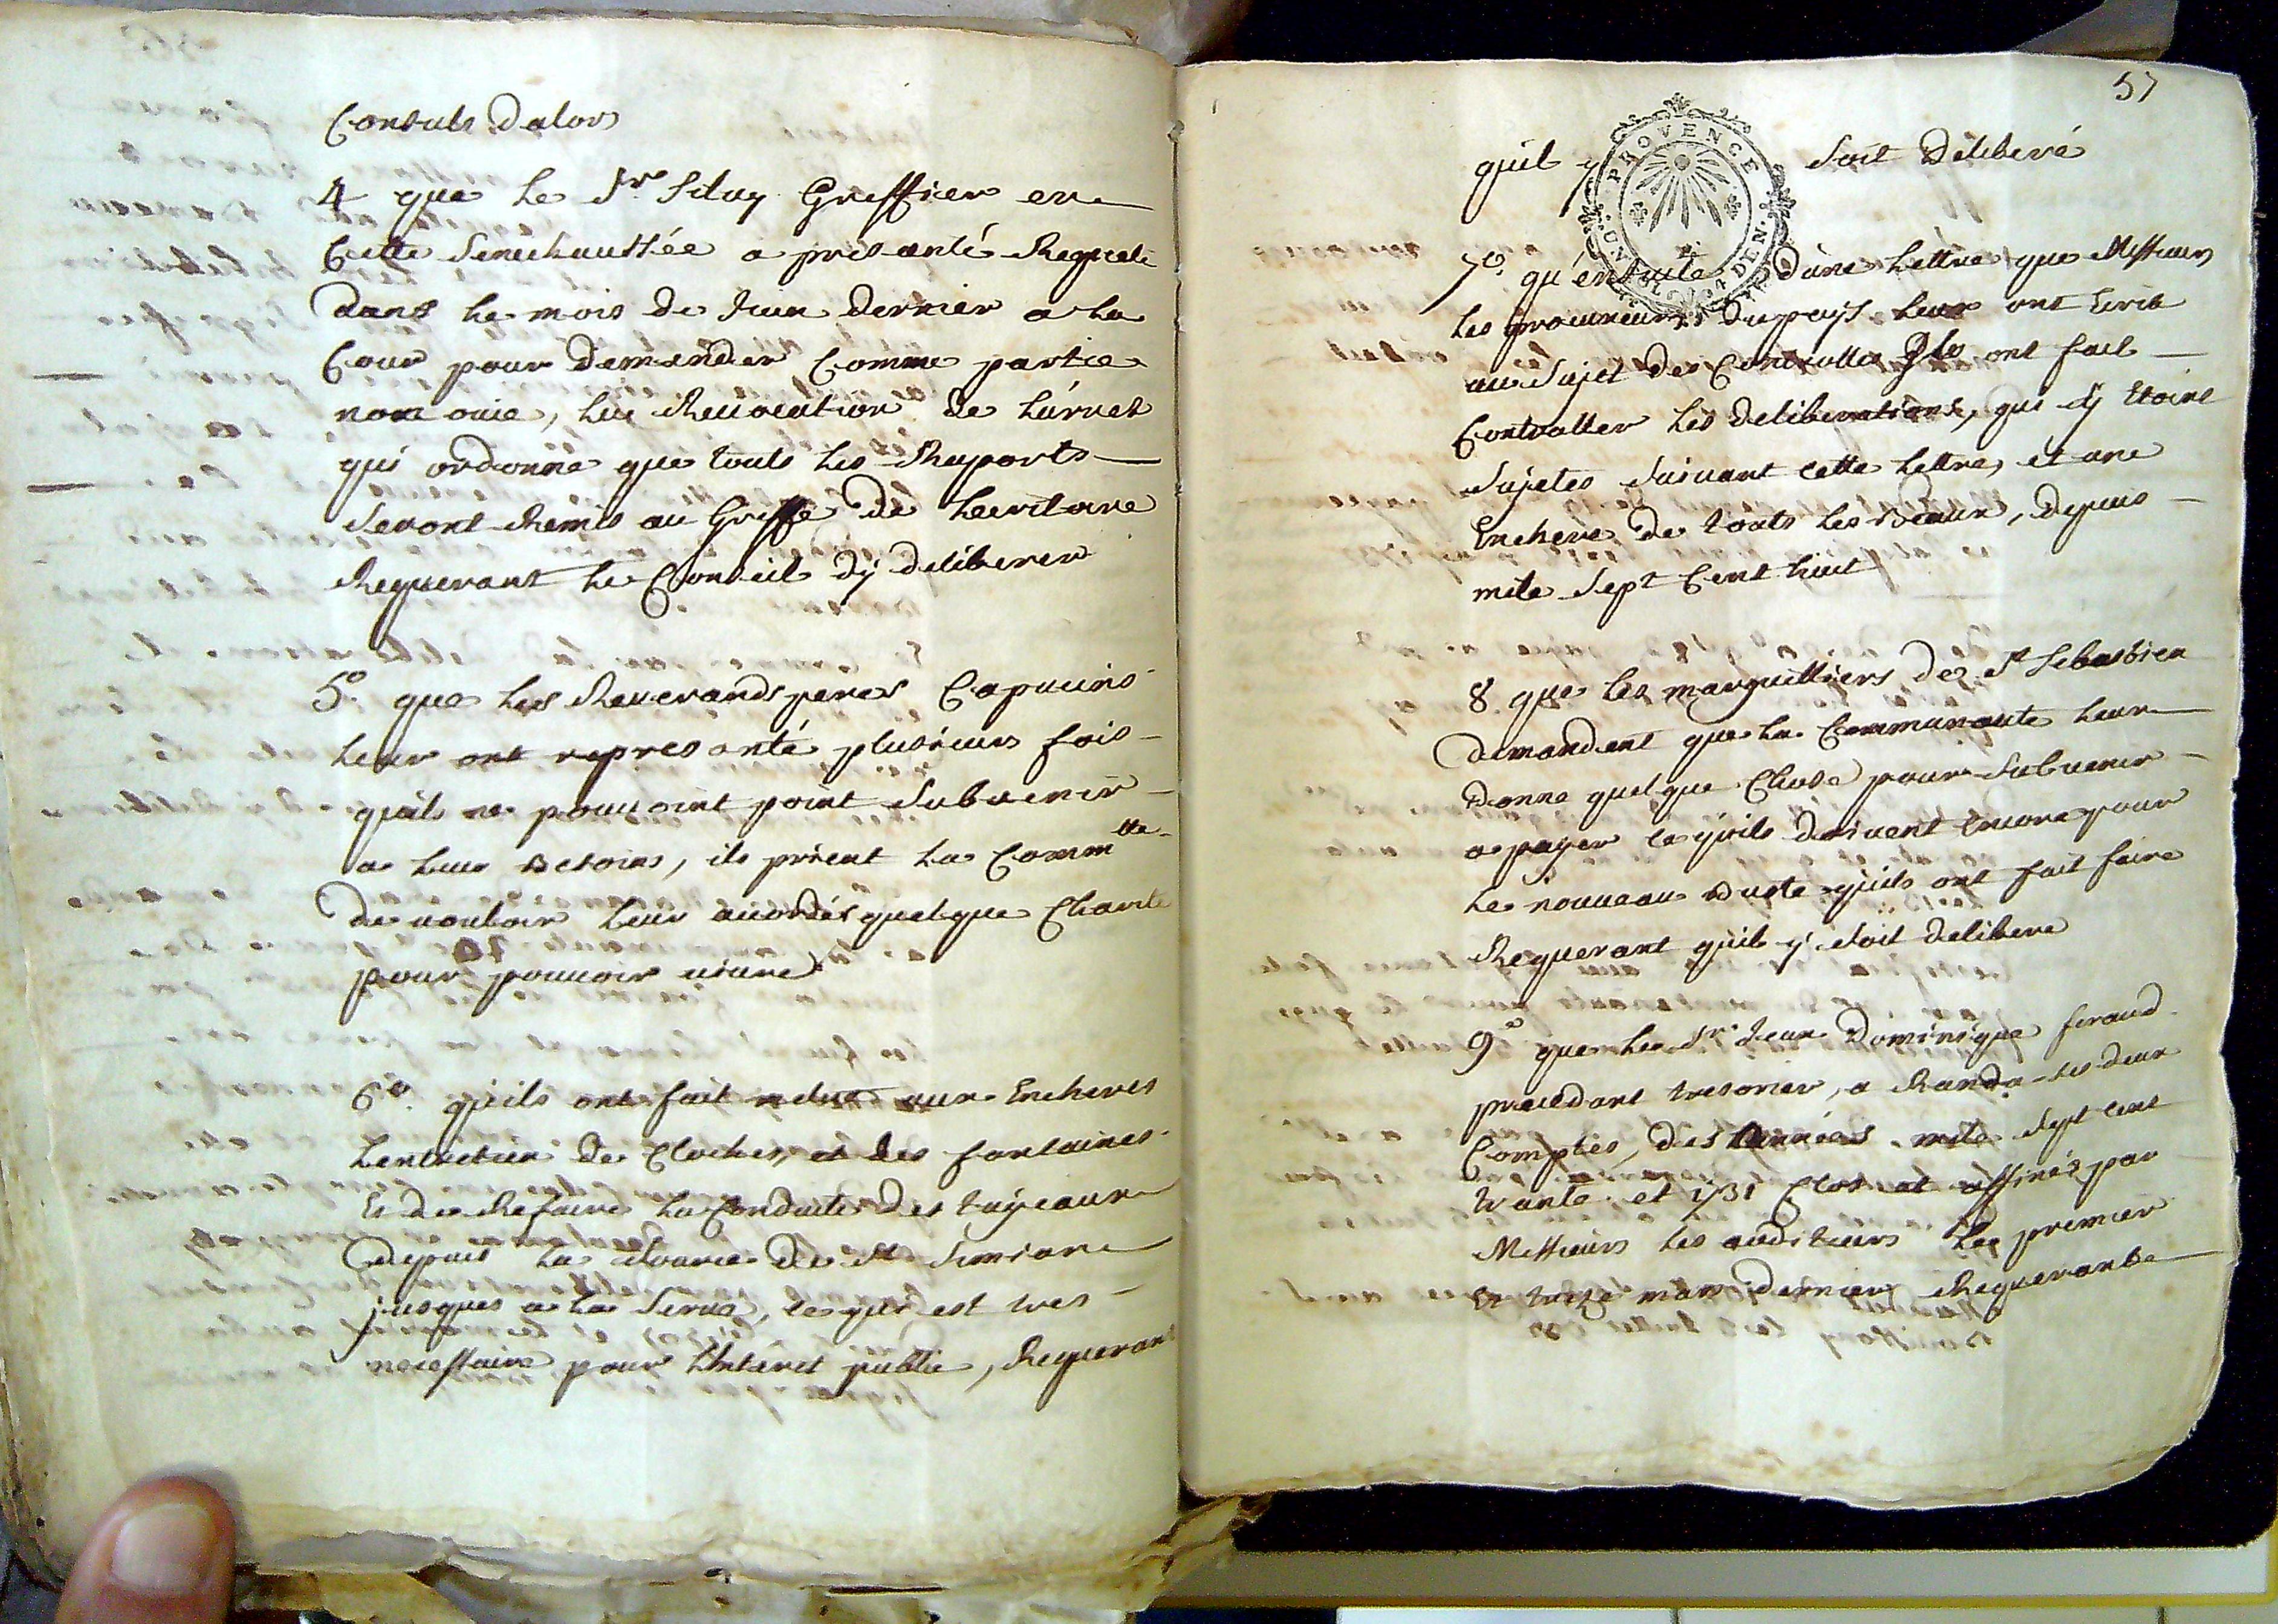 Consuls dalors
4 que le Sr Siluy Greffier en
Cette Senechaussée a presanté Requete
dans le mois de Juin dernier a la
Cour pour demander Comme partie
non ouie, la Reuocation de lárret
qui ordonne que touts les Raports
seront Remis au Greffe de lecritoire
Requerant le Conseil dÿ deliberer
5o que les Reuerands peres Capucins
leur ont represanté plusieurs fois
quils ne pouuoint point subuenir
a leur besoins, ils prient la Commtte
de uouloir leur acordér quelque Charité
pour pouuoir uiure
6o quils ont fait metre aux Encheres
Lentretien de Cloches, et des fontaines
Et de Refaire la Conduite des tuyeaux
depuis la source de St Simian
jusques a la Serue, ce qui est tres
necessaire pour Linteret public, Requerant
57
quil y soit deliberé
PROVENCE
GEN. DEN.
7o qu'ensuite dúne lettre que Messieurs
les procureurs du pays leur ont Ecrit
au sujet des Controlles Ils ont fait
Controller les deliberations, qui ÿ Etoint
sujetes suiuant cette lettre, et une
Enchere de touts les Beaux, depuis
mile sept Cent huit
8 que les marguilliers de St Sebastien
demandent que la Communaute leur
donne quelque Chose pour subuenir
a payer ce quils doiuent encore pour
le nouueau Buste quils ont fait faire
Requerant quil y soit delibere
9o que le Sr Jean Dominique feraud
precedant tresorier, a Randu ses deux
Comptes, des Années mile sept cent
trante et 1731 Clos et affinés par
Messieurs les auditeurs Les premier
Et treze mars dernier Requerant